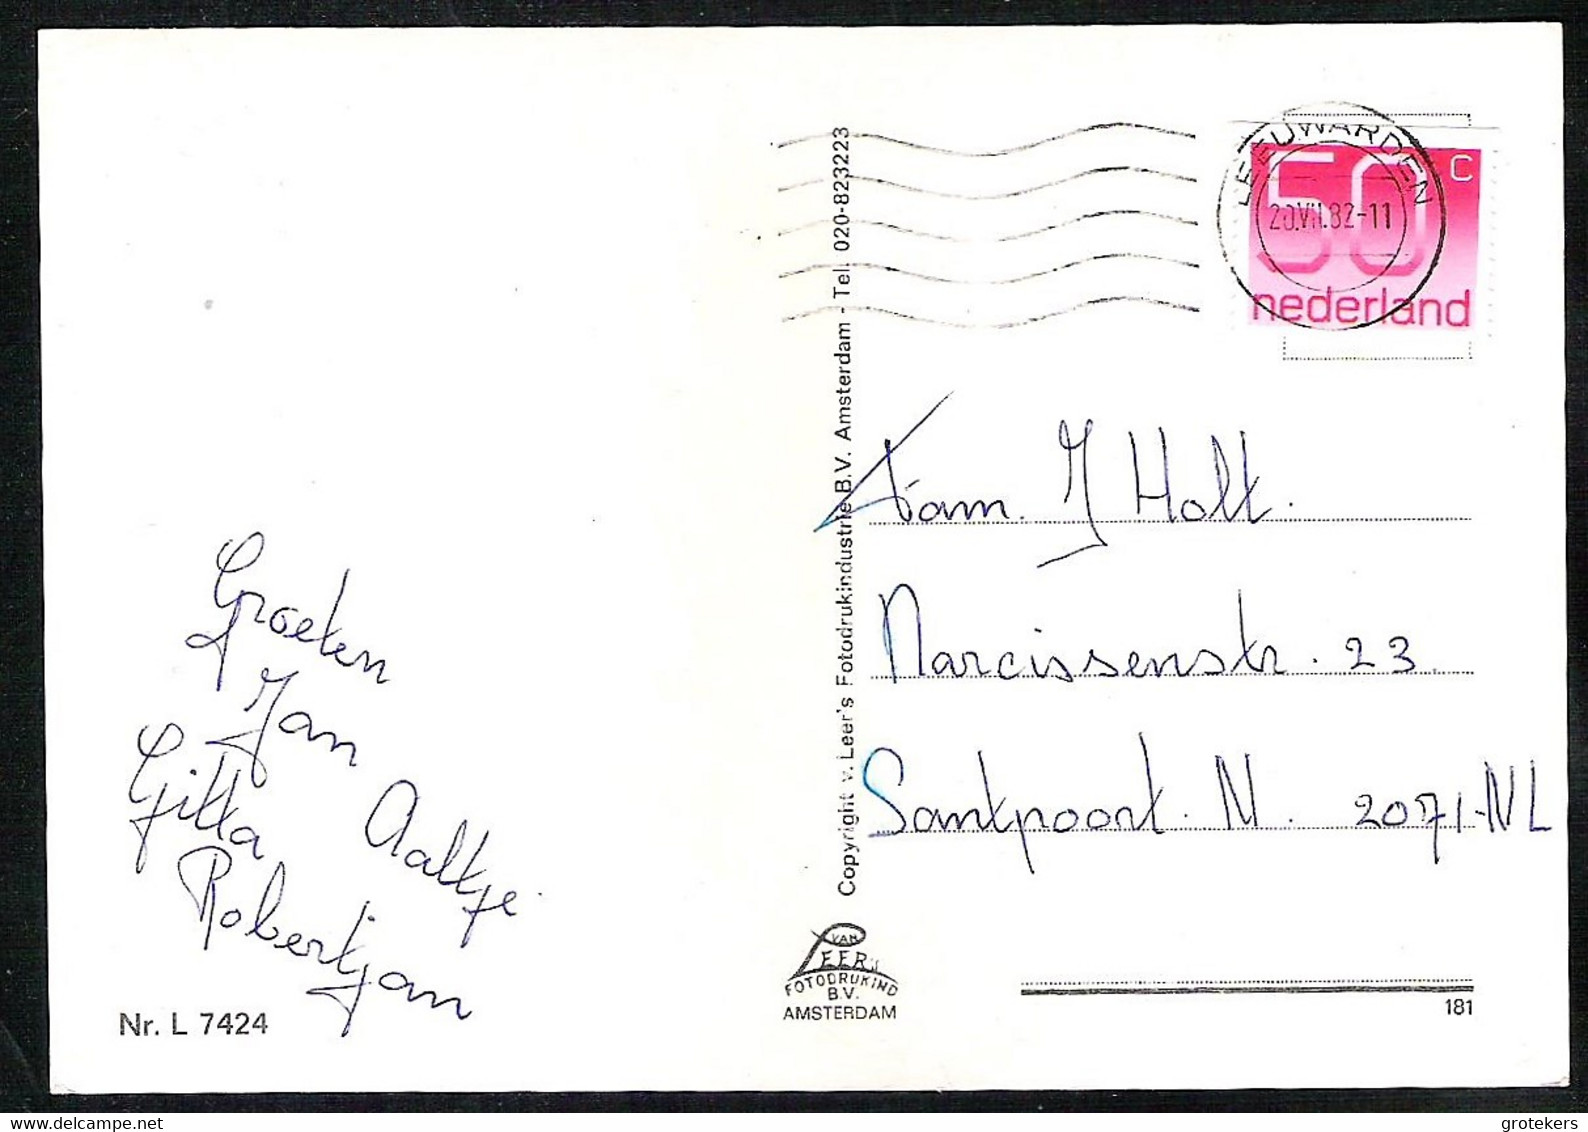 LEEUWARDEN
20.VII.82-11
50 C
nederland
Fam. J Holt.
Narcissenstr. 23.
Santpoort. N. 2071-NL
Groeten
Jan
Aaltje.
Gitta
Robertjan
Copyright v. Leer's Fotodrukindustrie B.V. Amsterdam - Tel. 020-823223
VAN
LEER'S
FOTODRUKIND
B.V.
AMSTERDAM
Nr. L 7424
181
delcampe.net
grotekers